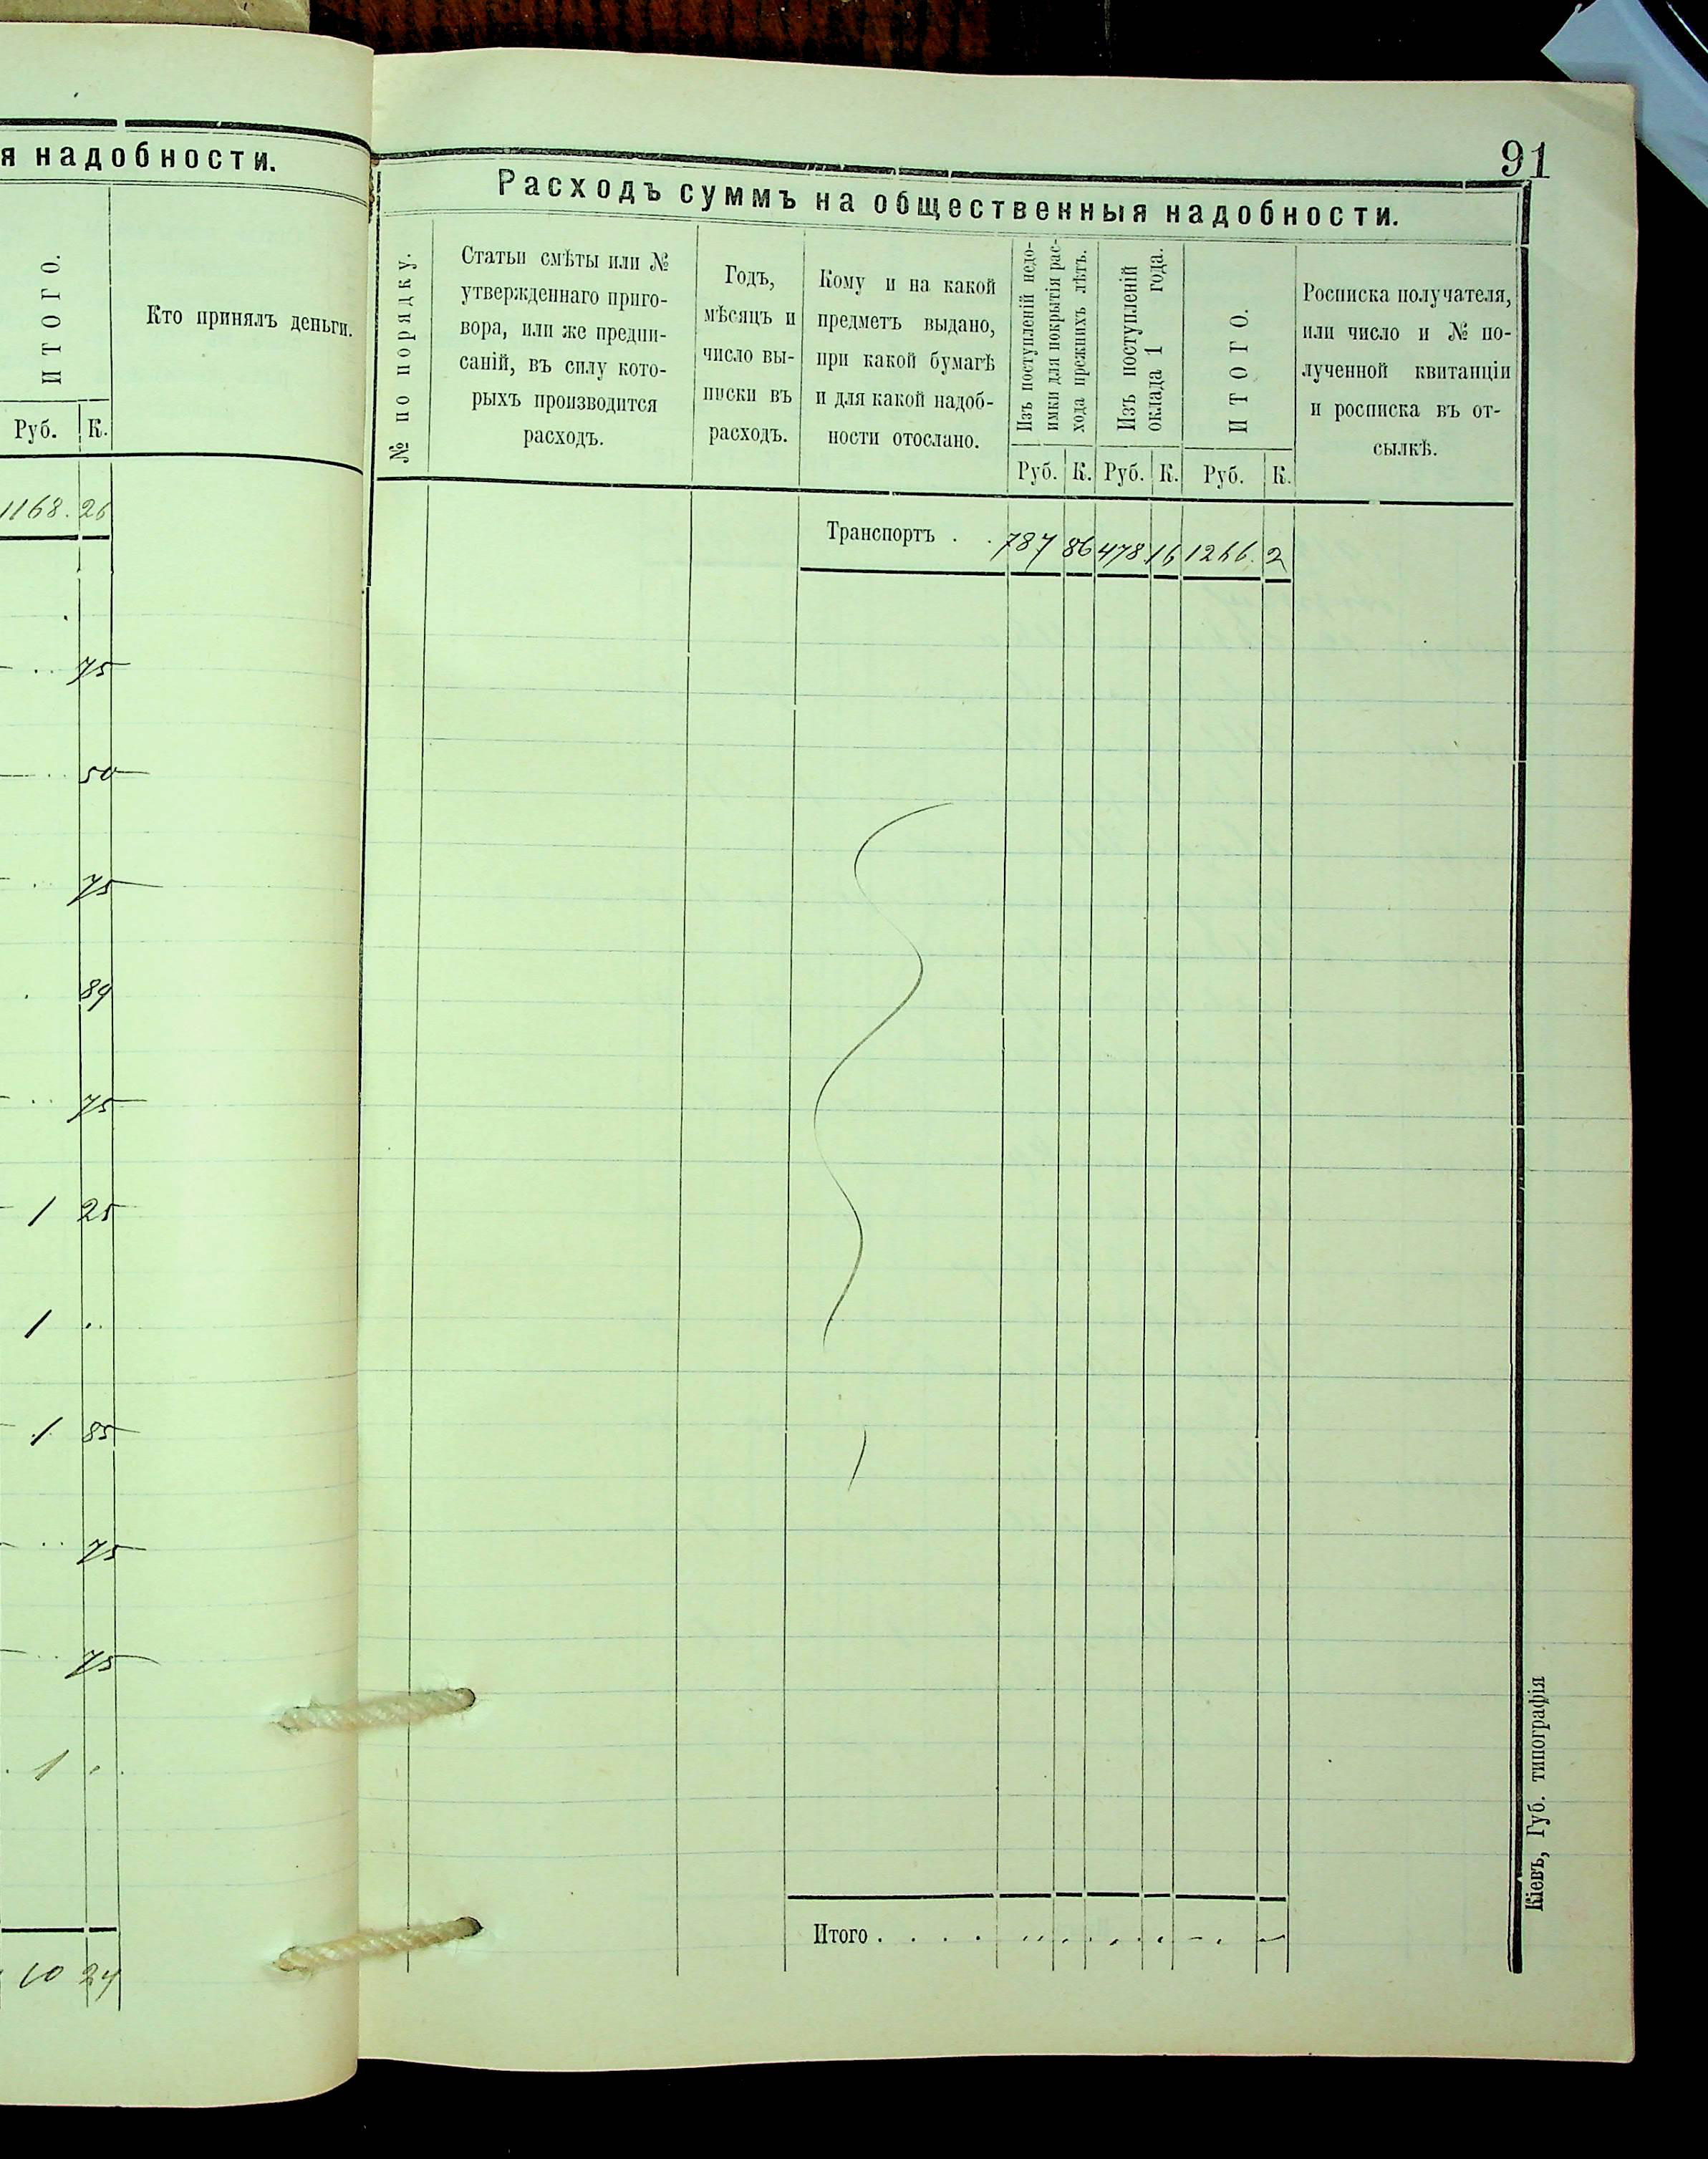 я надобности.
ИТОГО.
Кто принялъ деньги.
Руб. К.
1168. 26
75
50
75
89
75
1 25
1 ..
1 85
75
75
1 ..
10 24
91
Расходъ суммъ на общественныя надобности.
№ по порядку.
Статьи смѣты или №
утвержденнаго приго-
вора, или же предпи-
саній, въ силу кото-
рыхъ производится
расходъ.
Годъ,
мѣсяцъ и
число вы-
писки въ
расходъ.
Кому и на какой
предметъ выдано,
при какой бумагѣ
и для какой надоб-
ности отослано.
Изъ поступленій недо-
имки для покрытія рас-
хода прежнихъ лѣтъ.
Изъ поступленій
оклада 1 года.
ИТОГО.
Росписка получателя,
или число и № по-
лученной квитанціи
и росписка въ от-
сылкѣ.
Руб. К. Руб. К. Руб. К.
Транспортъ . . 787 86 478 16 1266. 2
Итого . . . .
Кіевъ, Губ. типографія